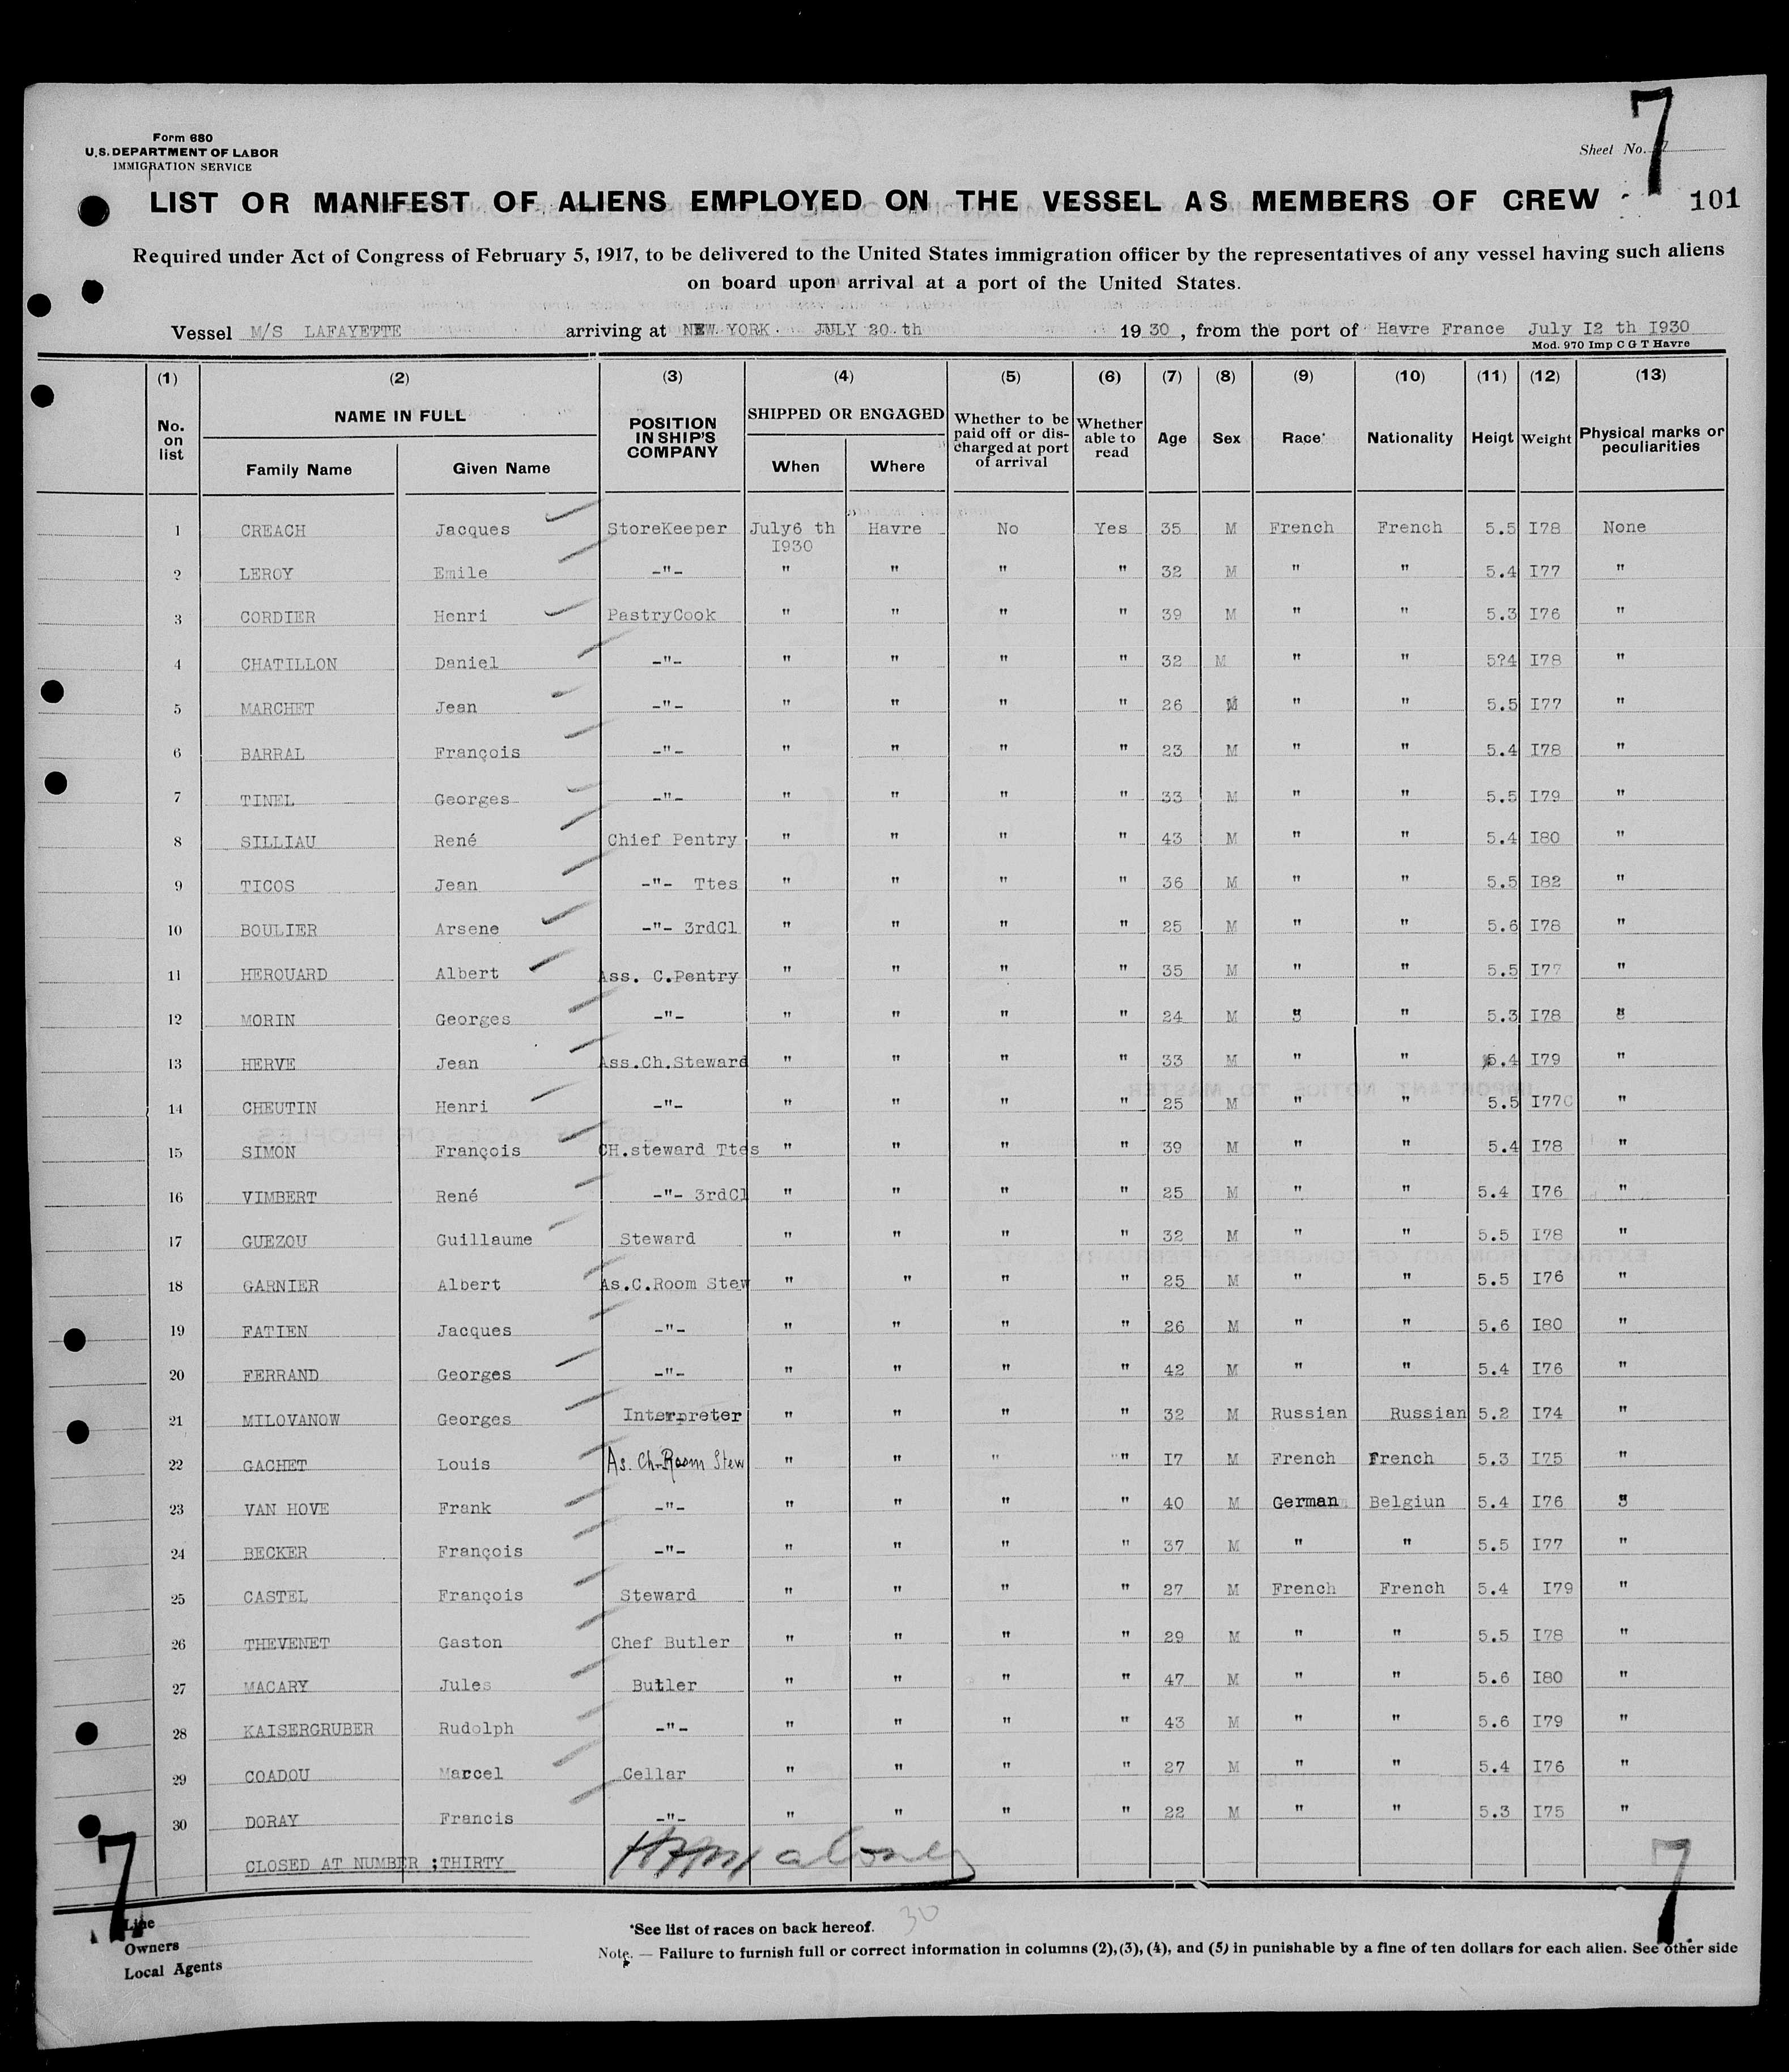 Form 680
U.S. DEPARTMENT OF LABOR
IMMIGRATION SERVICE
Sheet No. 7
7
LIST OR MANIFEST OF ALIENS EMPLOYED ON THE VESSEL AS MEMBERS OF CREW 101
Required under Act of Congress of February 5, 1917, to be delivered to the United States immigration officer by the representatives of any vessel having such aliens
on board upon arrival at a port of the United States.
Vessel M/S LAFAYETTE arriving at NEW YORK. JULY 20 th 1930, from the port of Havre France July I2 th I930
Mod. 970 Imp C G T Havre
(1) (2) (3) (4) (5) (6) (7) (8) (9) (10) (11) (12) (13)
No. on list NAME IN FULL Family Name Given Name POSITION IN SHIP'S COMPANY SHIPPED OR ENGAGED When Where Whether to be paid off or discharged at port of arrival Whether able to read Age Sex Race* Nationality Heigt Weight Physical marks or peculiarities
1 CREACH Jacques StoreKeeper July6 th I930 Havre No Yes 35 M French French 5.5 I78 None
2 LEROY Emile -"- " " " " 32 M " " 5.4 I77 "
3 CORDIER Henri PastryCook " " " " 39 M " " 5.3 I76 "
4 CHATILLON Daniel -"- " " " " 32 M " " 5?4 I78 "
5 MARCHET Jean -"- " " " " 26 M " " 5.5 I77 "
6 BARRAL François -"- " " " " 23 M " " 5.4 I78 "
7 TINEL Georges -"- " " " " 33 M " " 5.5 I79 "
8 SILLIAU René Chief Pentry " " " " 43 M " " 5.4 I80 "
9 TICOS Jean -"- Ttes " " " " 36 M " " 5.5 I82 "
10 BOULIER Arsene -"- 3rdCl " " " " 25 M " " 5.6 I78 "
11 HEROUARD Albert Ass. C.Pentry " " " " 35 M " " 5.5 I77 "
12 MORIN Georges -"- " " " " 24 M " " 5.3 I78 "
13 HERVE Jean Ass.Ch.Steward " " " " 33 M " " 5.4 I79 "
14 CHEUTIN Henri -"- " " " " 25 M " " 5.5 I77C "
15 SIMON François CH.steward Ttes " " " " 39 M " " 5.4 I78 "
16 VIMBERT René -"- 3rdCl " " " " 25 M " " 5.4 I76 "
17 GUEZOU Guillaume Steward " " " " 32 M " " 5.5 I78 "
18 GARNIER Albert As.C.Room Stew " " " " 25 M " " 5.5 I76 "
19 FATIEN Jacques -"- " " " " 26 M " " 5.6 I80 "
20 FERRAND Georges -"- " " " " 42 M " " 5.4 I76 "
21 MILOVANOW Georges Interpreter " " " " 32 M Russian Russian 5.2 I74 "
22 GACHET Louis As. Ch. Room Stew " " " " I7 M French French 5.3 I75 "
23 VAN HOVE Frank -"- " " " " 40 M German Belgiun 5.4 I76 "
24 BECKER François -"- " " " " 37 M " " 5.5 I77 "
25 CASTEL François Steward " " " " 27 M French French 5.4 I79 "
26 THEVENET Gaston Chef Butler " " " " 29 M " " 5.5 I78 "
27 MACARY Jules Butler " " " " 47 M " " 5.6 I80 "
28 KAISERGRUBER Rudolph -"- " " " " 43 M " " 5.6 I79 "
29 COADOU Marcel Cellar " " " " 27 M " " 5.4 I76 "
30 DORAY Francis -"- " " " " 22 M " " 5.3 I75 "
CLOSED AT NUMBER ;THIRTY
7 7
Line
Owners
Local Agents
*See list of races on back hereof. 30
Note. — Failure to furnish full or correct information in columns (2), (3), (4), and (5) in punishable by a fine of ten dollars for each alien. See other side